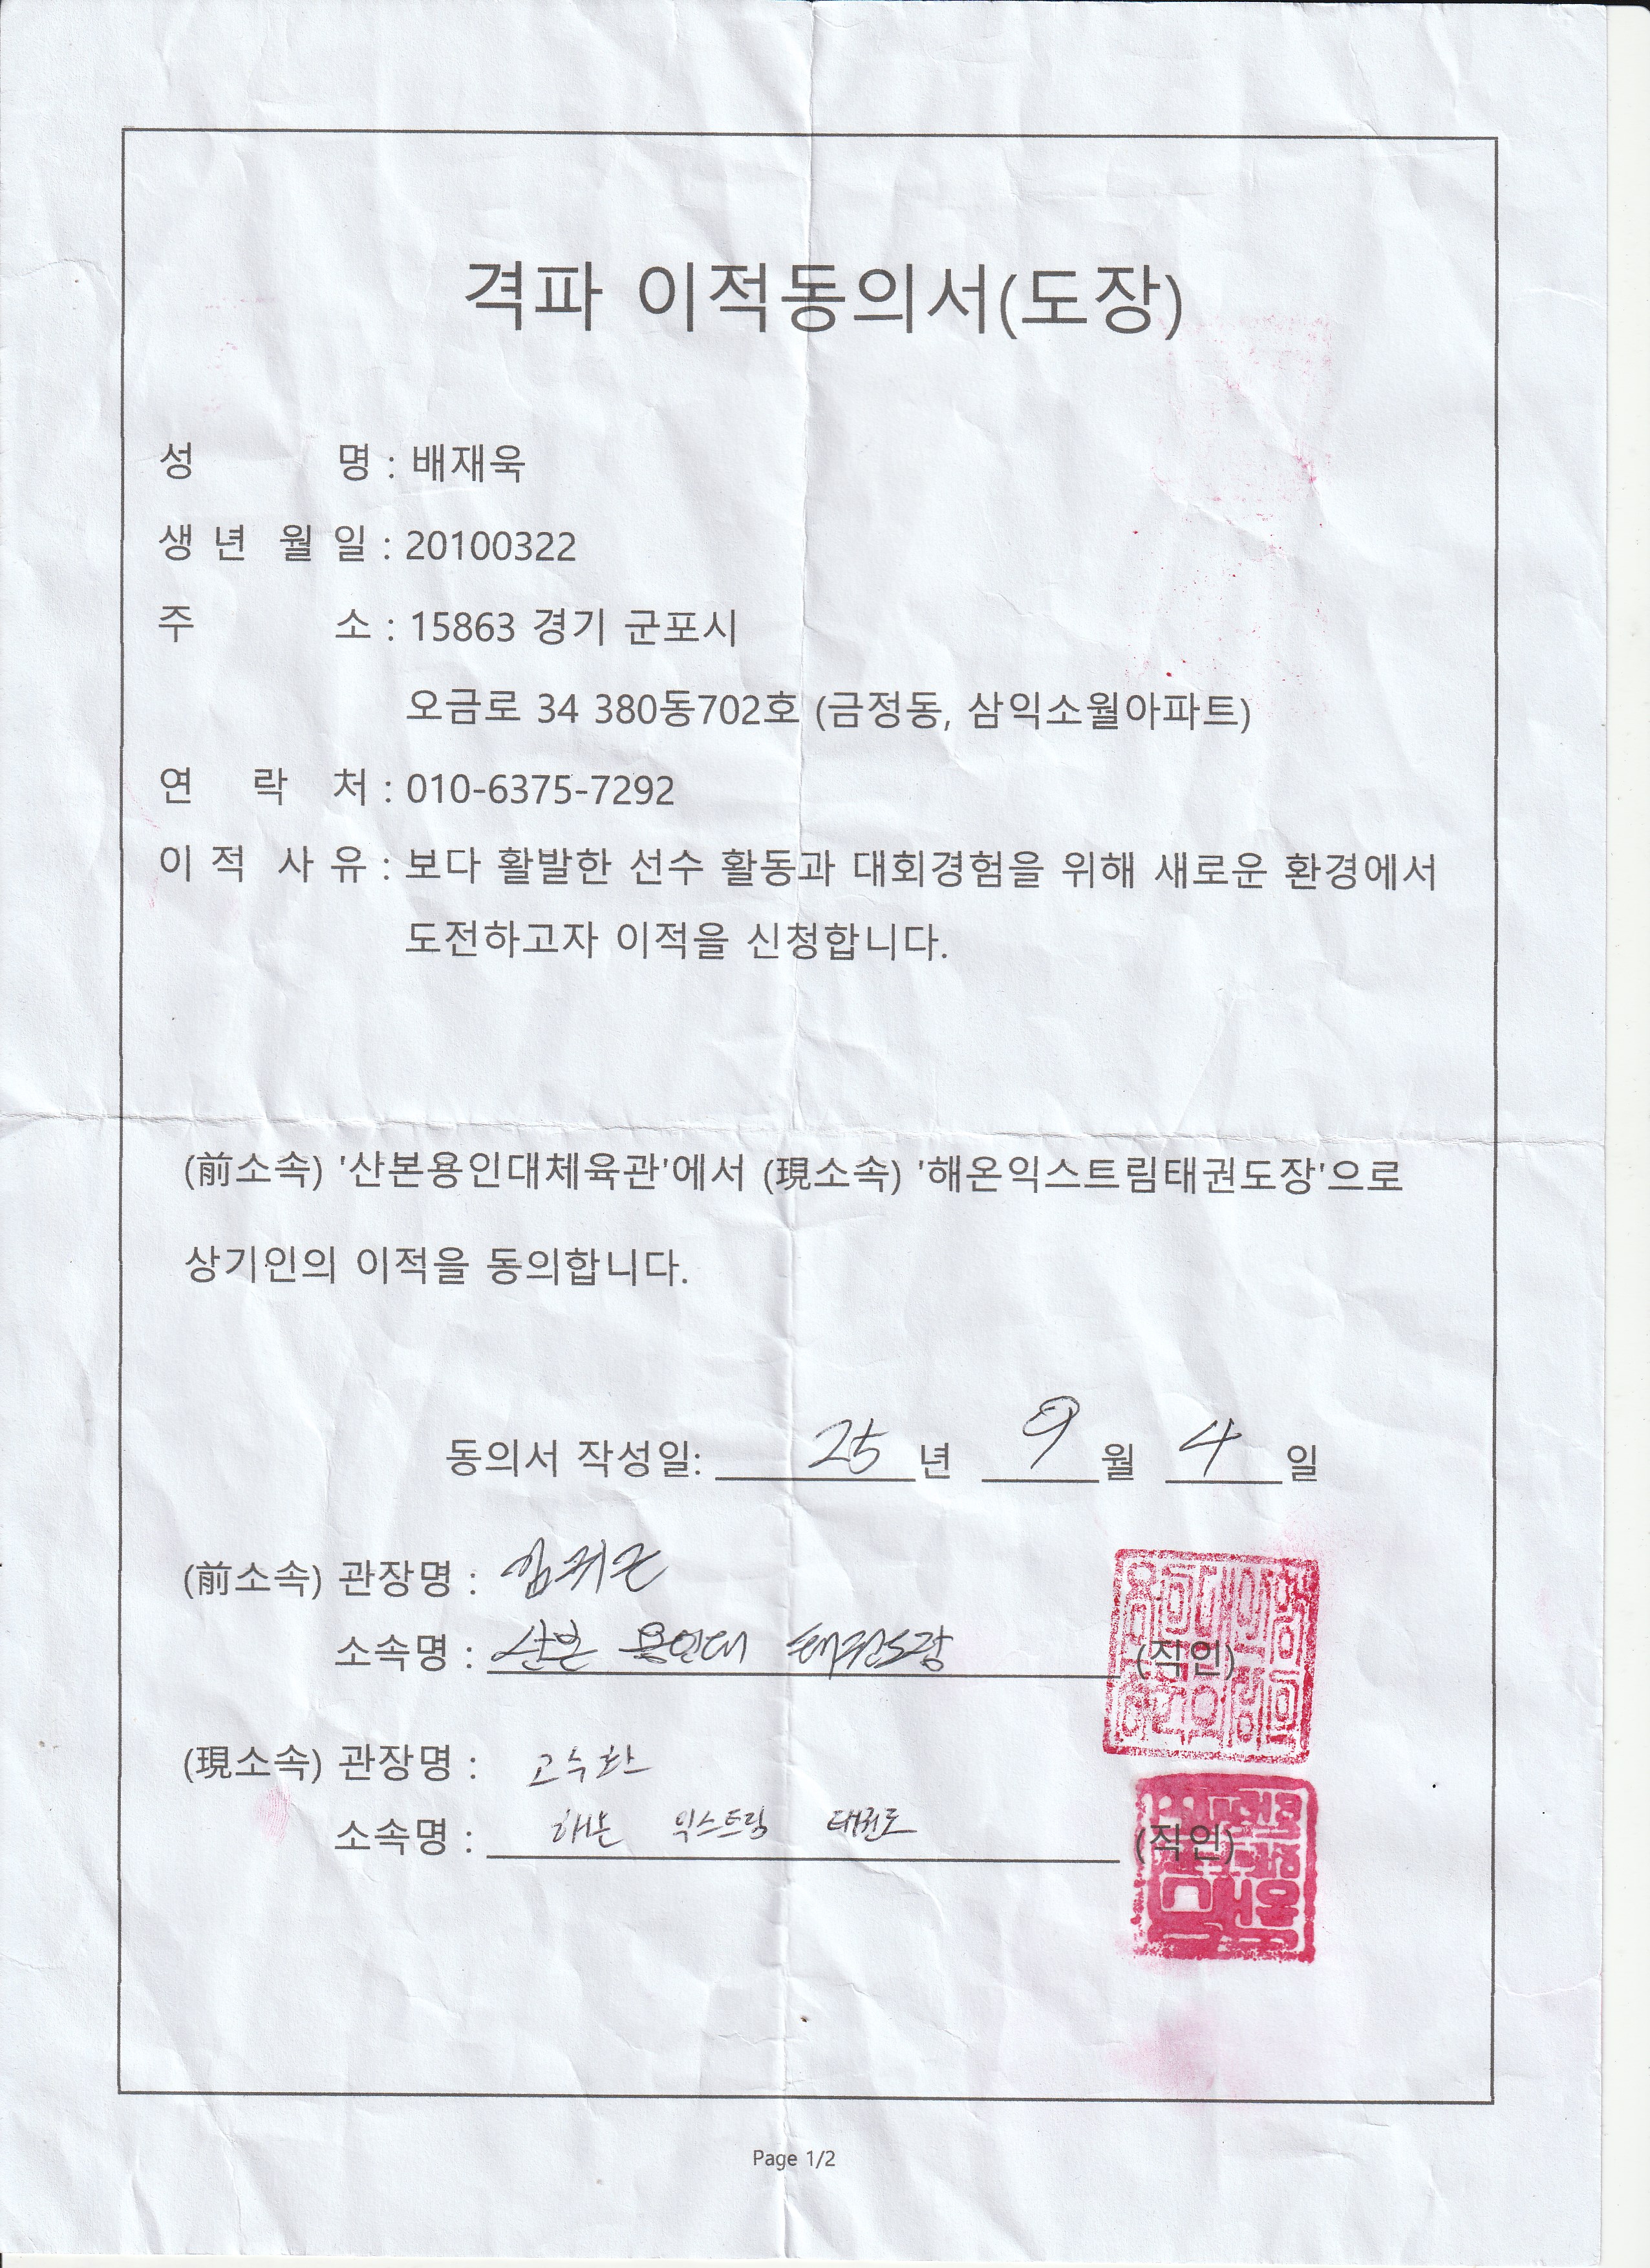 격파 이적동의서(도장)
성 명 : 배재욱
생 년 월 일 : 20100322
주 소 : 15863 경기 군포시
오금로 34 380동702호 (금정동, 삼익소월아파트)
연 락 처 : 010-6375-7292
이 적 사 유 : 보다 활발한 선수 활동과 대회경험을 위해 새로운 환경에서
도전하고자 이적을 신청합니다.
(前소속) '산본용인대체육관'에서 (現소속) '해온익스트림태권도장'으로
상기인의 이적을 동의합니다.
동의서 작성일: 25 년 9 월 4 일
(前소속) 관장명 :
소속명 : 산본 용인대 태권도장 (직인)
(現소속) 관장명 : 고수환
소속명 : 해온 익스트림 태권도 (직인)
Page 1/2